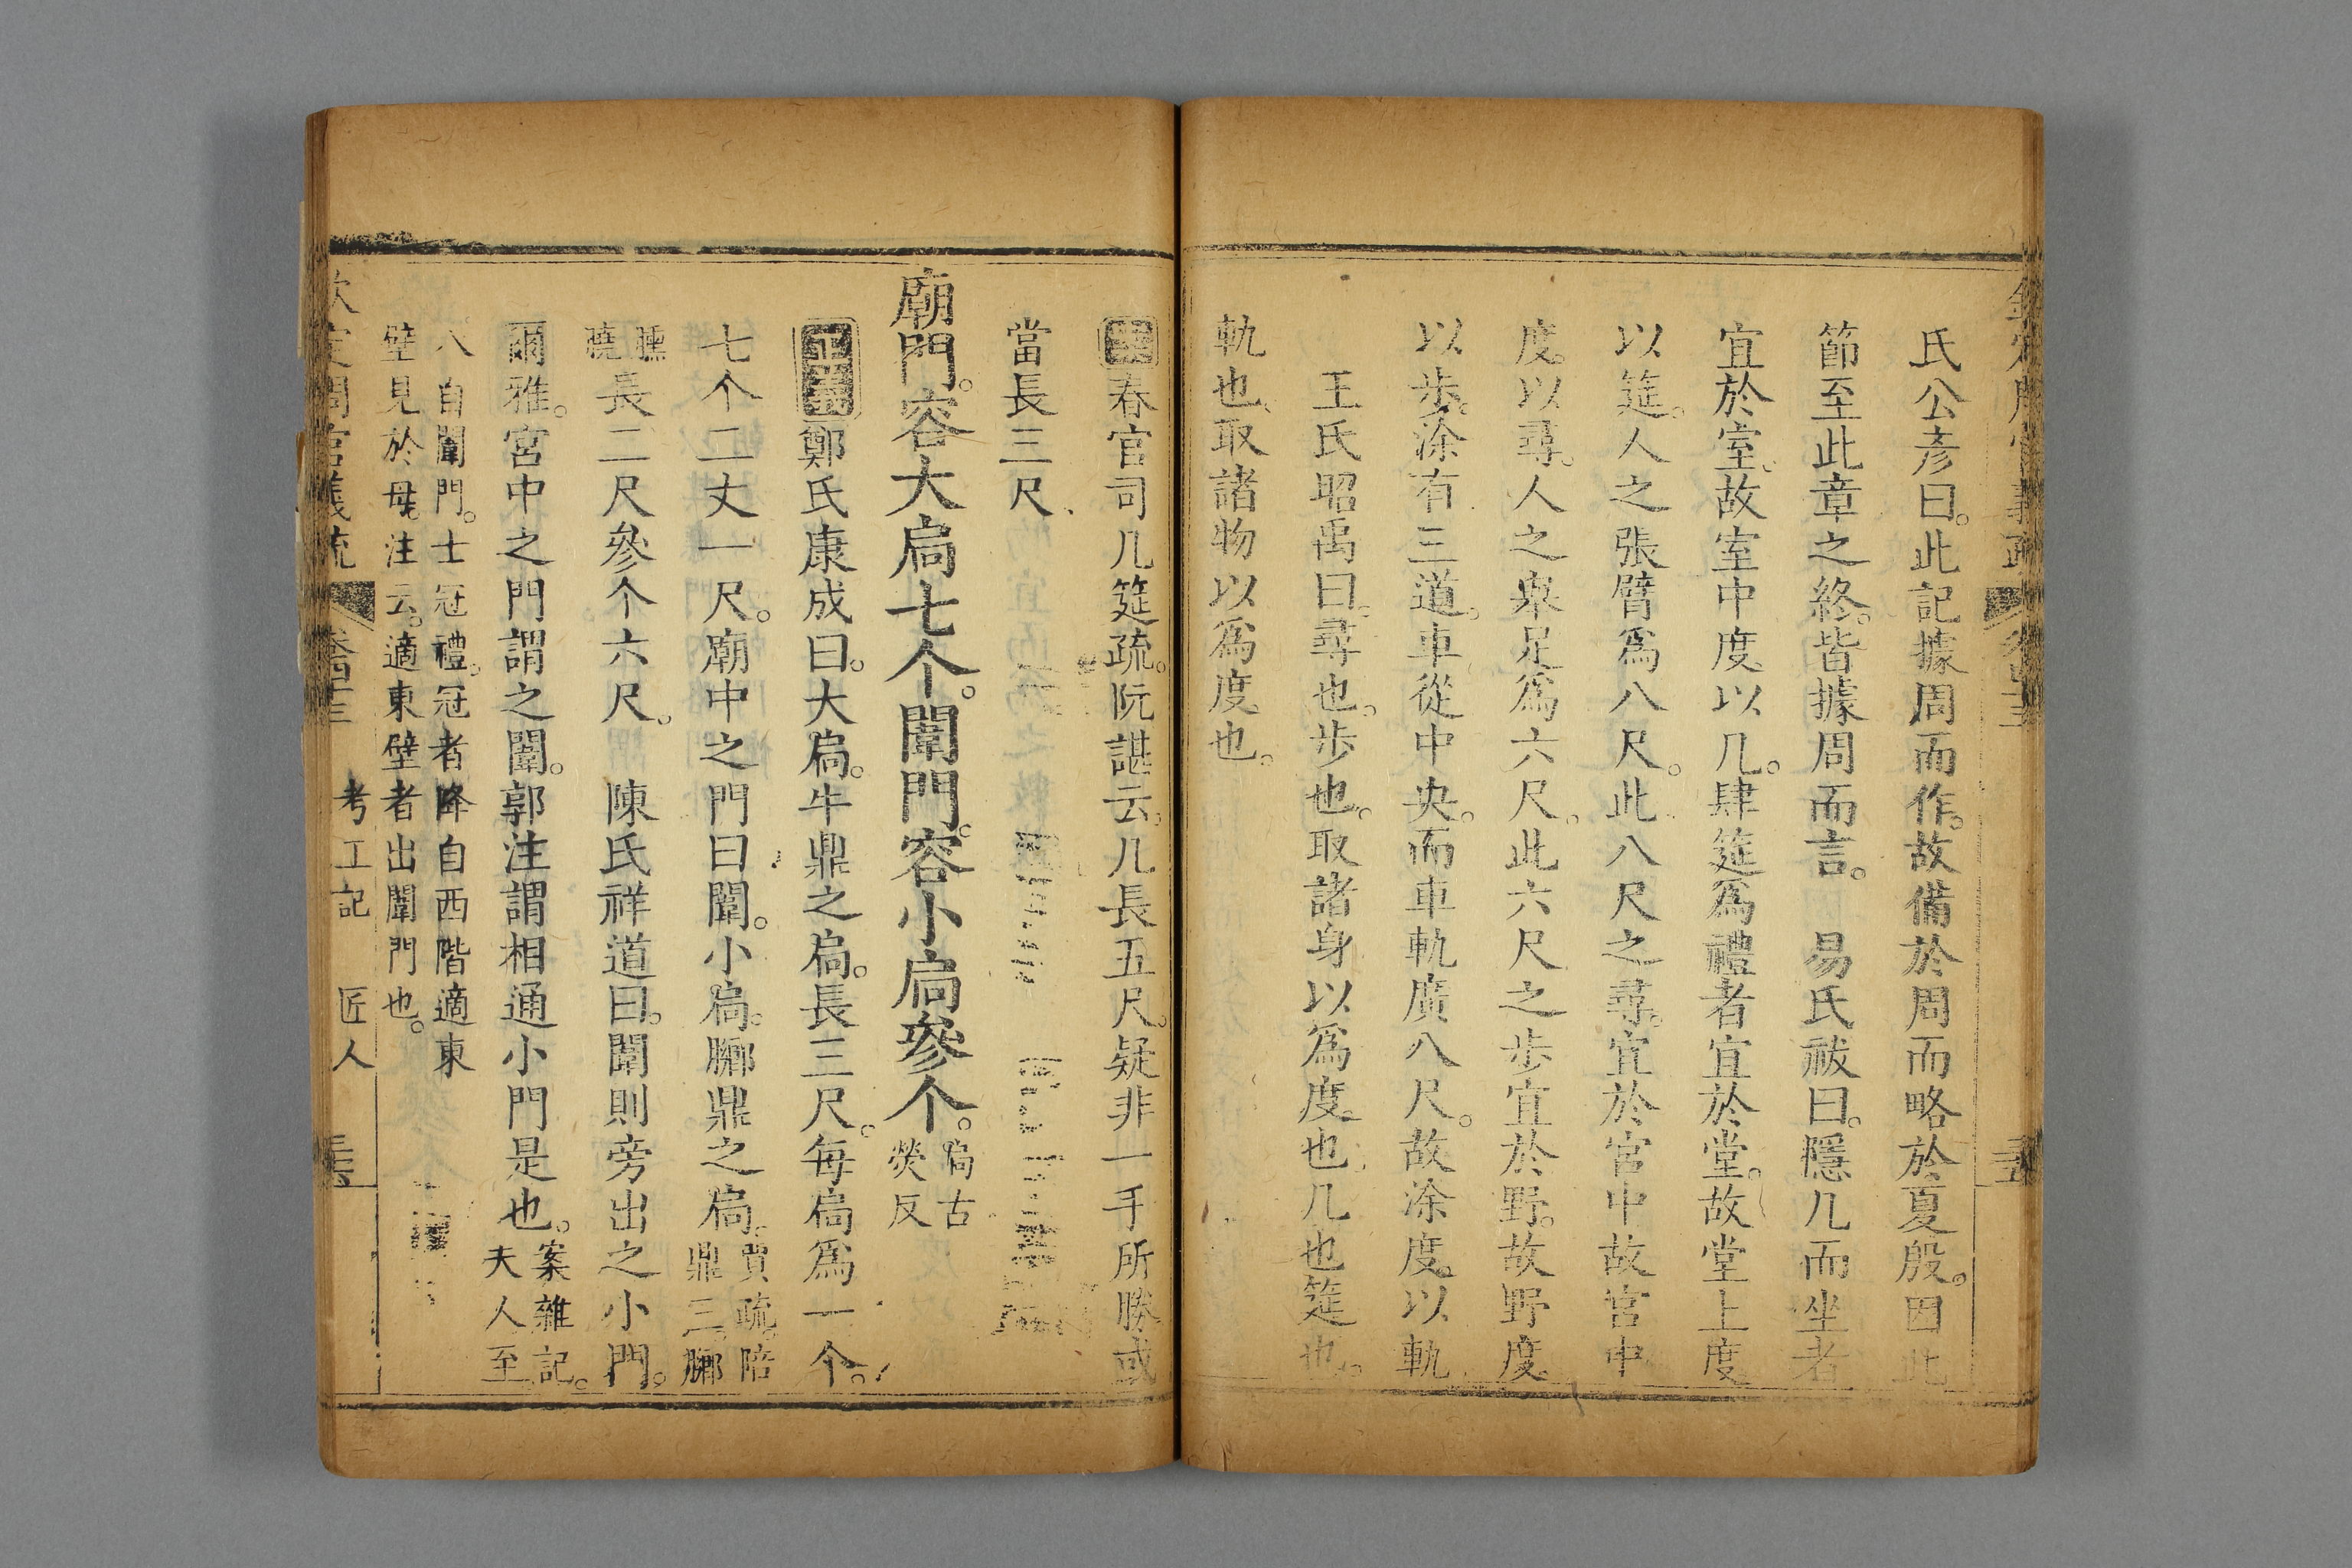 氏公彥曰。此記據周而作。故備於周而略於夏殷。因此
節至此章之終。皆據周而言。　易氏祓曰。隱几而坐者
宜於室。故室中度以几。肆筵爲禮者宜於堂。故堂上度
以筵。人之張臂爲八尺。此八尺之尋。宜於宮中故宮中
度以尋。人之舉足爲六尺。此六尺之步宜於野。故野度
以步。涂有三道。車從中央。而車軌廣八尺。故涂度以軌
王氏昭禹曰。尋也。步也。取諸身以爲度也。几也筵也。
軌也。取諸物以爲度也。
案春官司几筵疏。阮諶云。几長五尺。疑非一手所勝或
當長三尺
廟門。容大扃七个。闈門。容小扃參个。扃古
熒反
正義鄭氏康成曰。大扃。牛鼎之扃。長三尺。每扃爲一个。
七个二丈一尺。廟中之門曰闈。小扃。膷鼎之扃。賈疏。陪
鼎三。膷
臐
膮長二尺參个六尺。　陳氏祥道曰。闈則旁出之小門。
爾雅。宮中之門謂之闈。郭注謂相通小門是也。案雜記。
夫人至
入自闈門。士冠禮。冠者降自西階適東
壁見於母。注云。適東壁者出闈門也。
欽定周官義疏　卷四十三　考工記　匠人